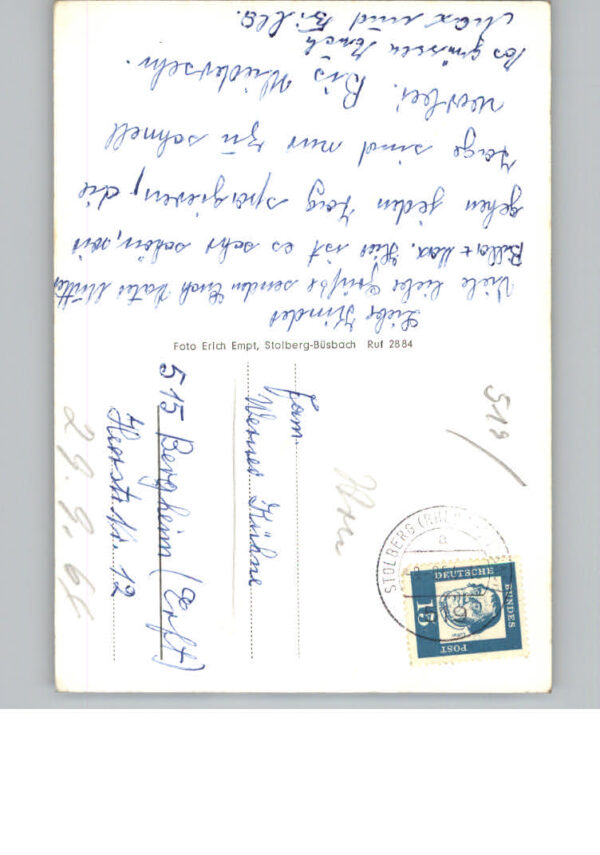 Liebe Kinder
Viele liebe Grüße senden Euch Vater Mutter
Billa + Max. Hier ist es sehr schön, wir
gehen jeden Tag spazieren, die
Tage sind nur zu schnell
vorbei. Bis Wiedersehn.
Es grüssen Euch
Max und Billa.
Foto Erich Empt, Stolberg-Büsbach Ruf 2884
Fam.
Werner Kühne
515 Bergheim (Erft)
12
29. 9. 66
519
STOLBERG (RHEINL
a
DEUTSCHE
BUNDES
POST
15